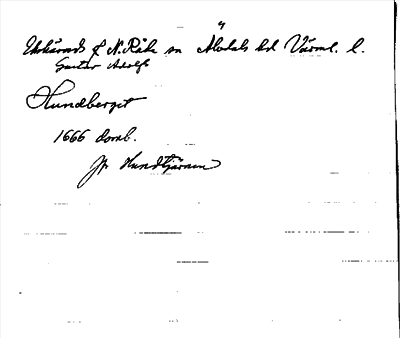 Ekshärads f N. Råda sn Älvdals hd Värml. l.
Gustav Adolfs
Hundberget
1666 domb.
Jfr Hundtjärnen